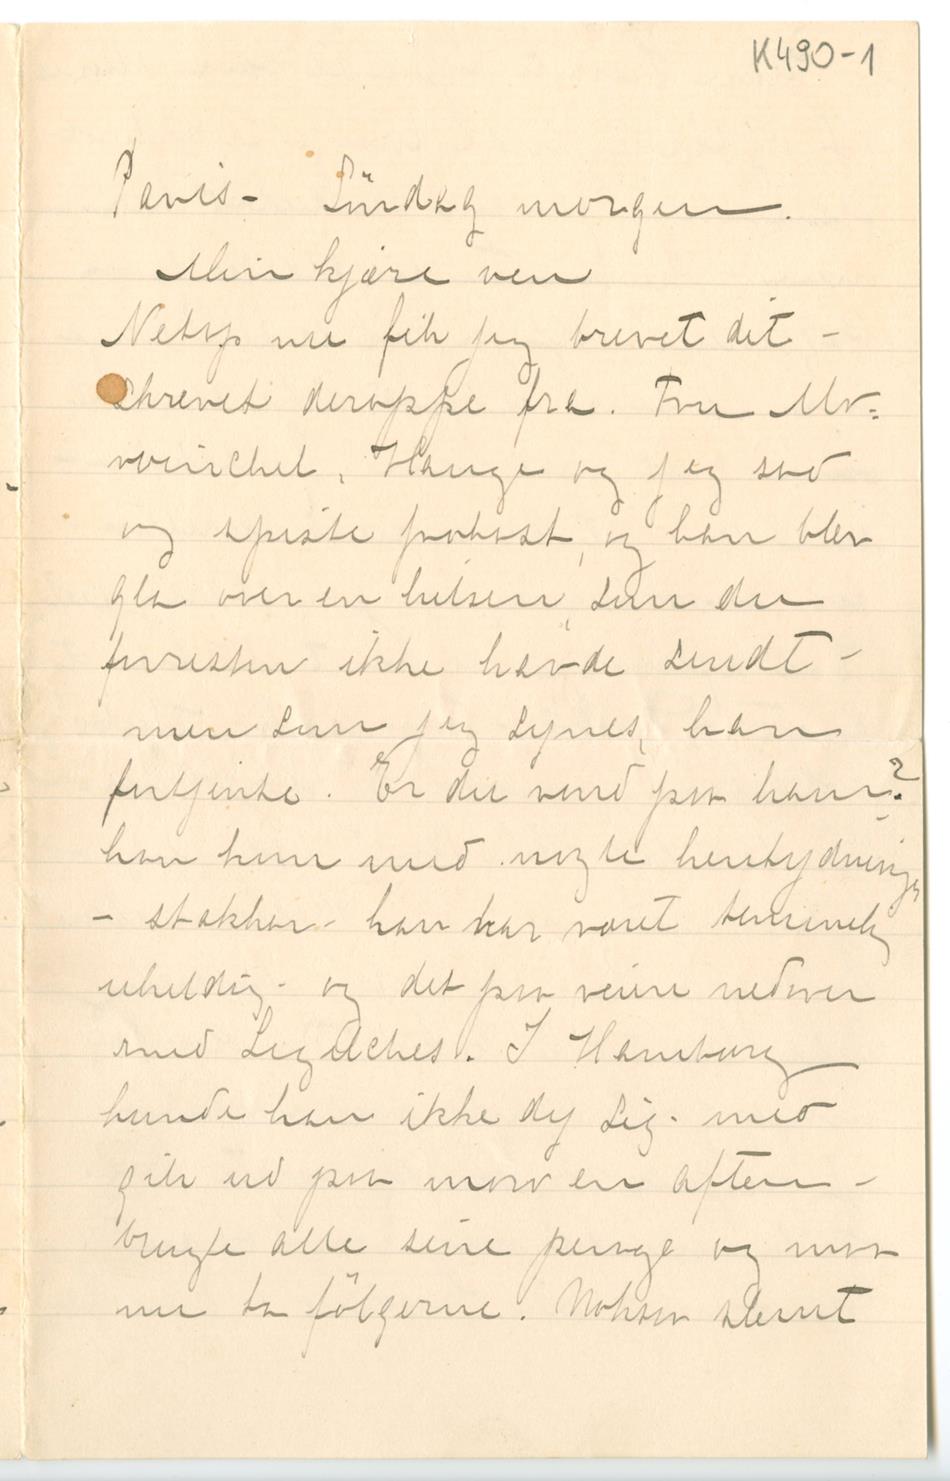 K490-1
Paris - Søndag morgen.
Min kjære ven
Netop nu fik jeg brevet dit -
skrevet deroppe fra. Fru
Hauge og jeg sad
og spiste frokost, og han blev
gla over en hilsen, som du
forresten ikke havde sendt -
men som jeg synes, han
fortjente. Er du vred paa ham?
kom kun med nogle hentydninger
- stakkar - han har været temmelig
uheldig - og det paa veien nedover
med Legaches. I Hamburg
kunde han ikke dy sig - med
gik ud paa moro en aften -
brugte alle sine penge og maa
nu ta følgerne. Noksaa slemt